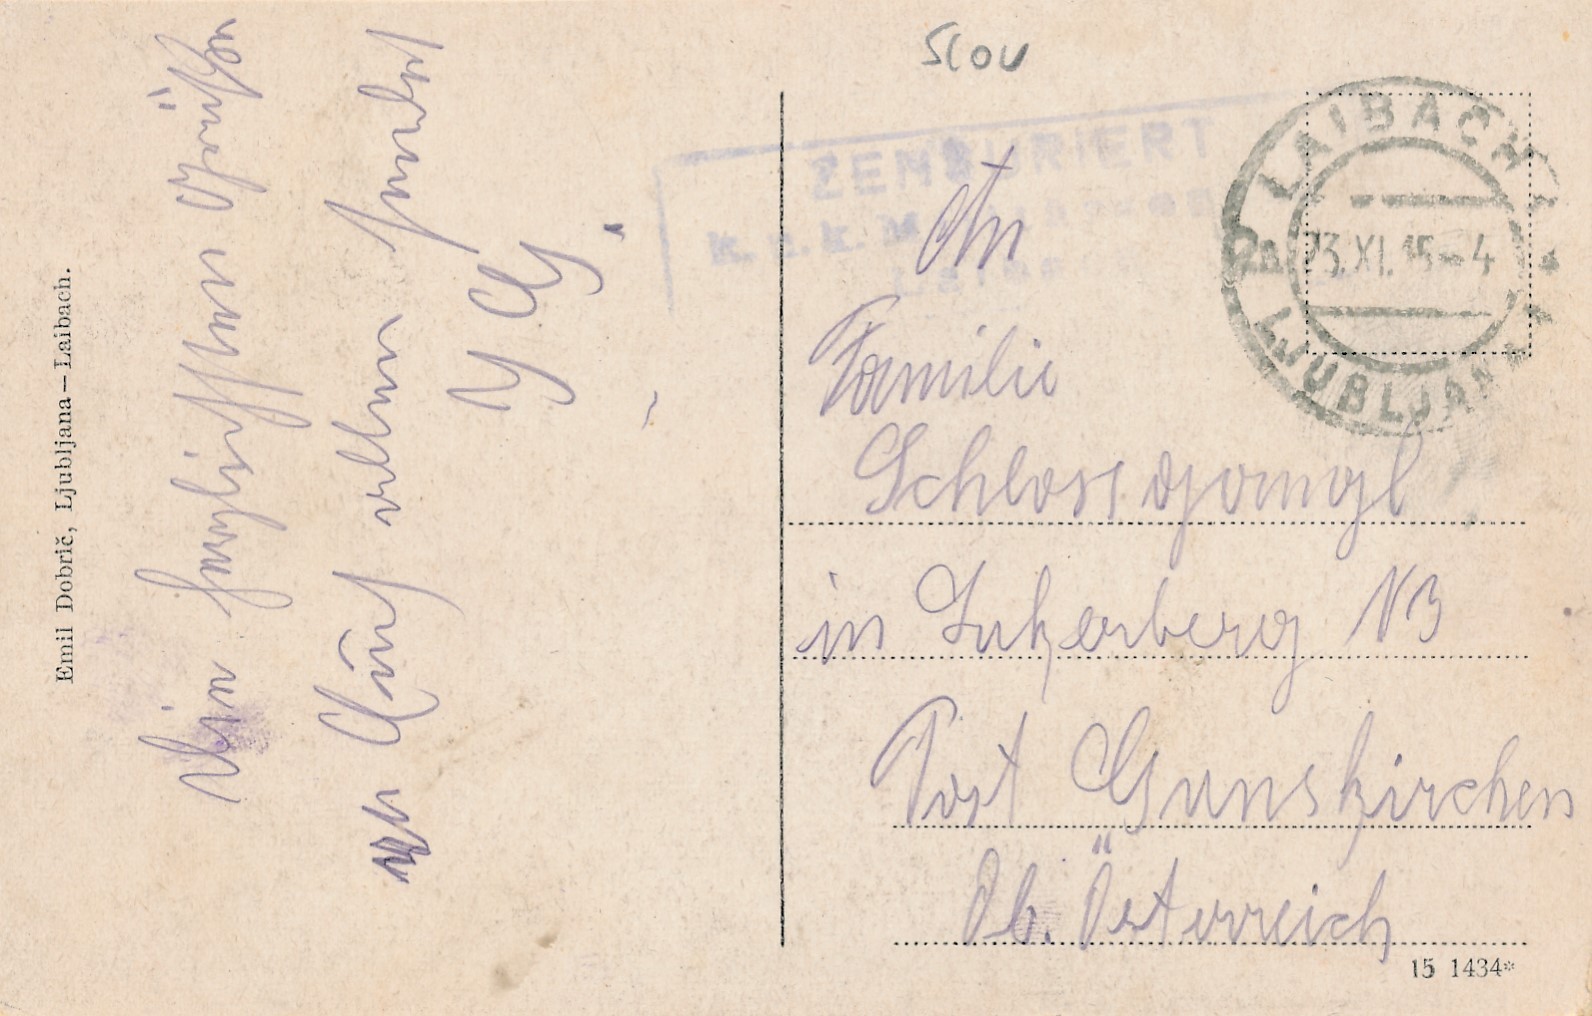 Slov
ZENSURIERT
k. u. k.
LAIBACH
2a
23.XI.15-4
LJUBLJANA
An
Familie
Schlossgangl
in
Post Gunskirchen
Ob. Österreich
Die herzlichsten Grüßen
Euch allen sendet
Emil Dobrič, Ljubljana – Laibach.
15 1434*